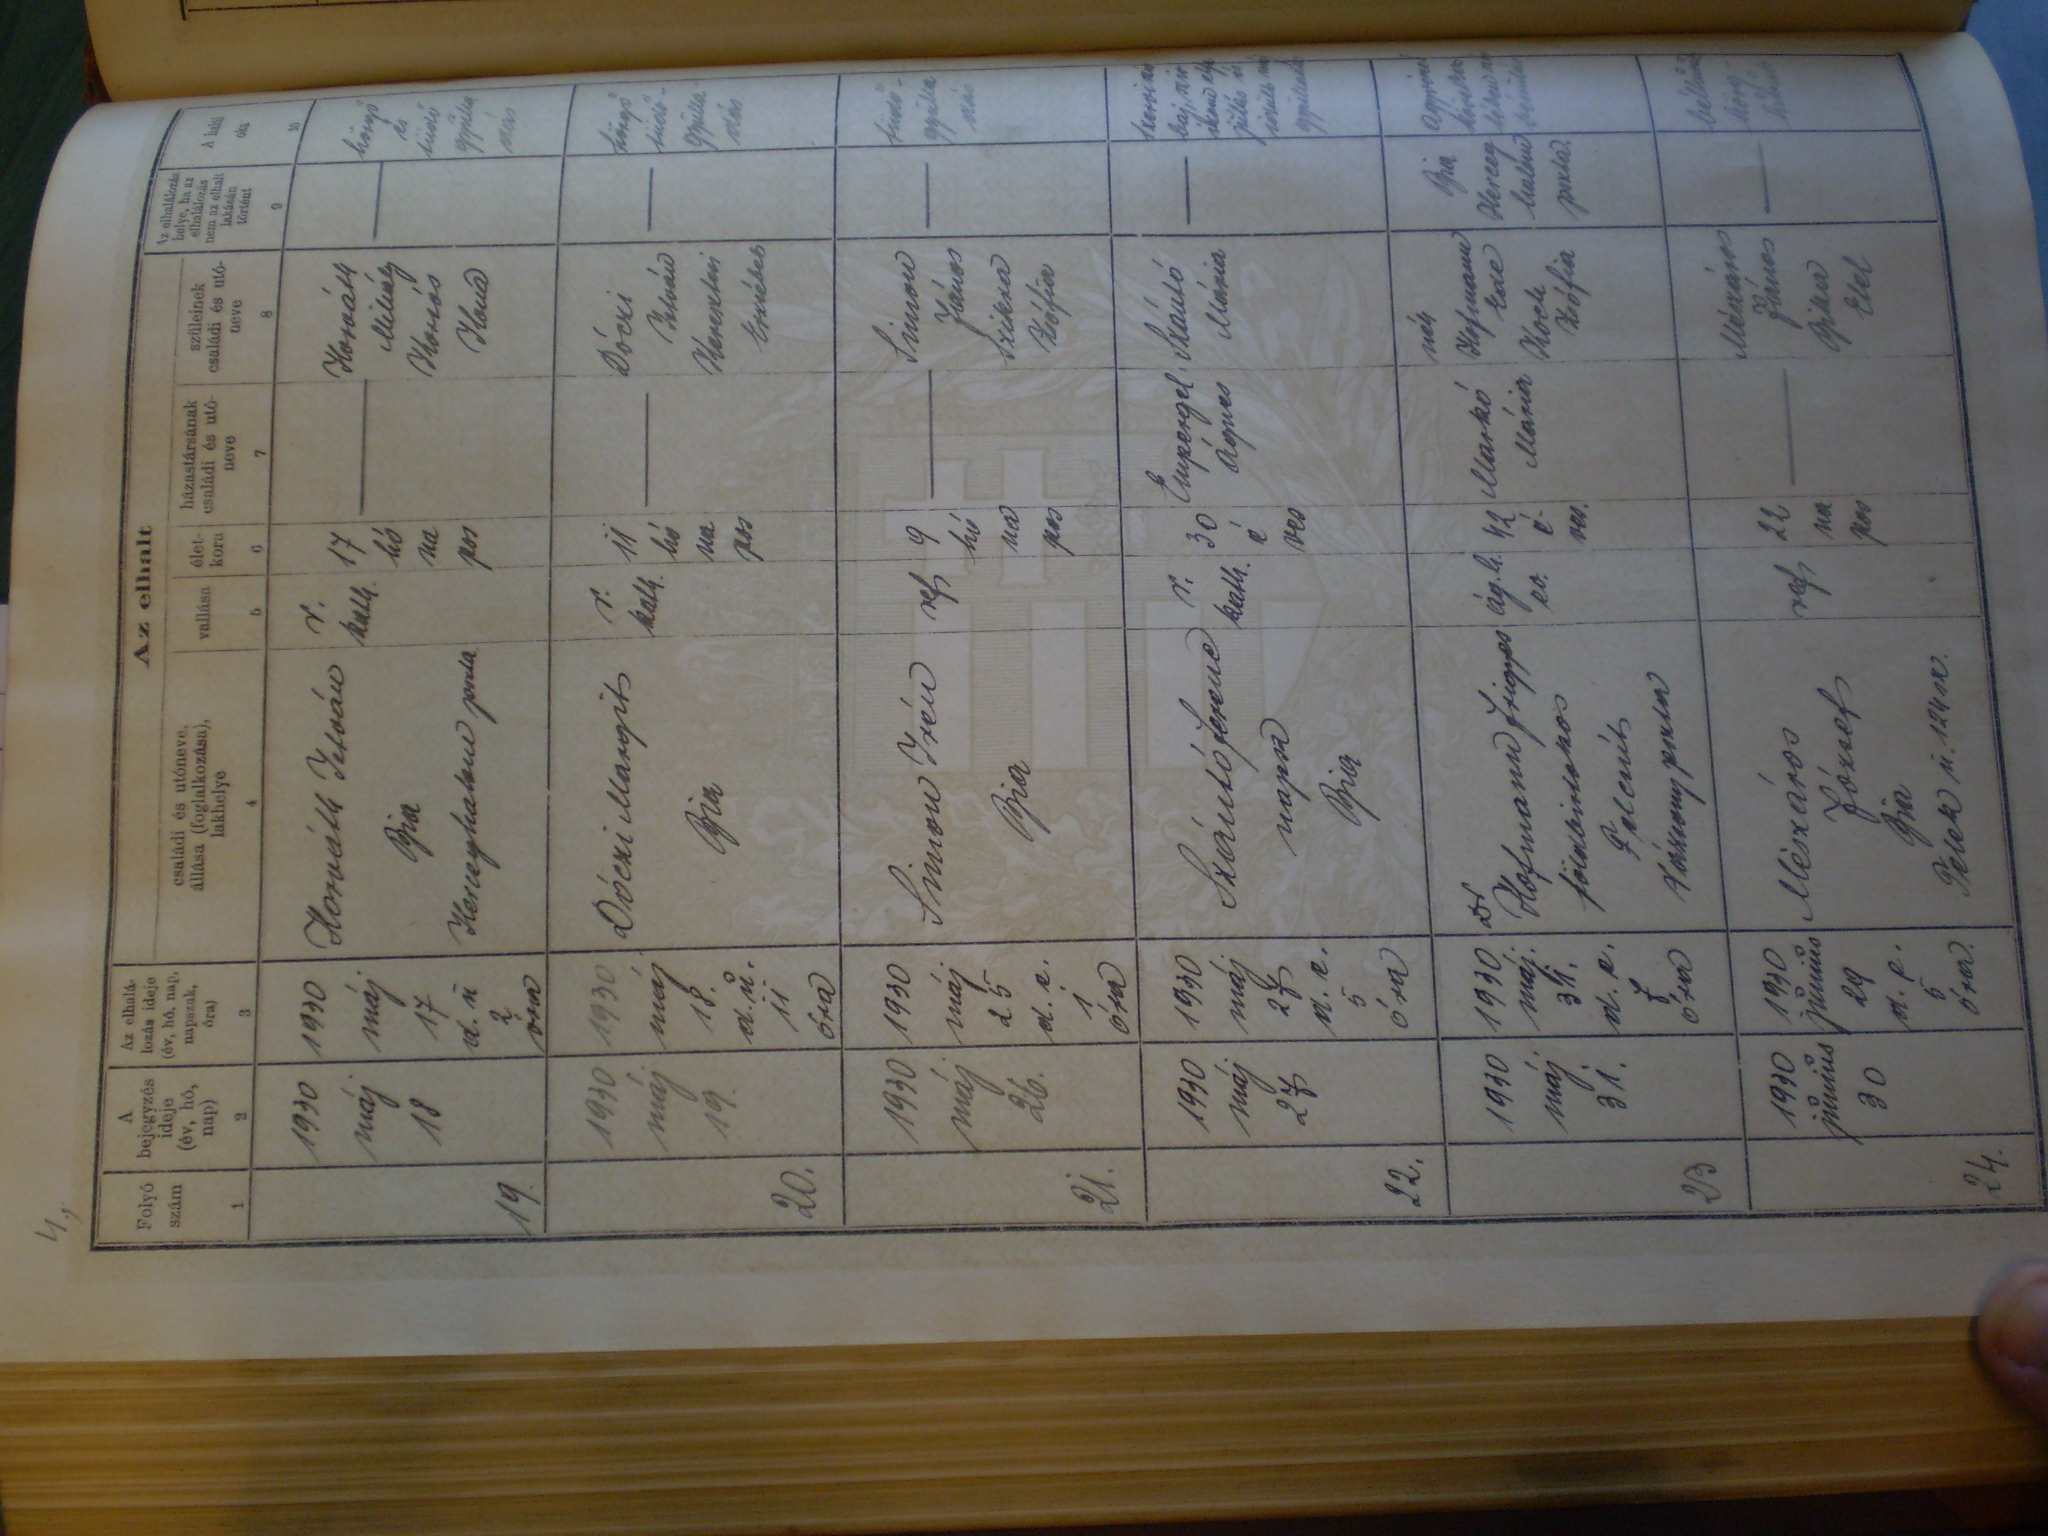 4.,
Az elhalt
Folyó
szám
A
bejegyzés
ideje
(év, hó,
nap)
Az elhalá-
lozás ideje
(év, hó, nap,
napszak,
óra)
családi és utóneve,
állása (foglalkozása),
lakhelye
vallása
élet-
kora
házastársának
családi és utó-
neve
szüleinek
családi és utó-
neve
Az elhalálozás
helye, ha az
elhalálozás
nem az elhalt
lakásán
történt
A halál
oka
1
2
3
4
5
6
7
8
9
10
19.
1930
máj
18
1930
máj
17
d. u
2
óra
Horváth István
Bia
Herceghalom puszta
r.
kath.
17
hó
na
pos
Horváth
Mihály
Ilona
hörgő
és
tüdő
gyulla
dás
20.
1930
máj
19.
1930
máj
18.
d. u.
11
óra
Dóczi Margit
Bia
r.
kath.
11
hó
na
pos
Dóczi
István
Keresztesi
Erzsébet
hörgő
tüdő-
gyulla-
dás
21.
1930
máj
26.
1930
máj
25
d. e.
1
óra
Simon Irén
Bia
ref
9
hó
na
pos
Simon
János
Szikra
Zsófia
tüdő-
gyulla
dás
22.
1930
máj
27
1930
máj
27
d. e.
5
óra
Szántó Ferenc
napsz
Bia
r.
kath.
30
é
ves
Empergel
Ágnes
Szántó
Mária
szervi szív
baj,
23
1930
máj
31.
1930
máj.
31.
d. e.
7
óra
Dr
Hofmann Frigyes
földbirtokos
Felcsút
puszta
ág. h.
ev.
42
é-
ves.
Markó
Mária
néh
Hofmann
Koch
Zsófia
Bia
Herceg
halom
puszta.
24.
1930
június
30
1930
június
29
d. e.
5
óra.
Mészáros
József
Bia
Petek u. 124 sz.
ref
22
na
pos
Mészáros
János
Etel